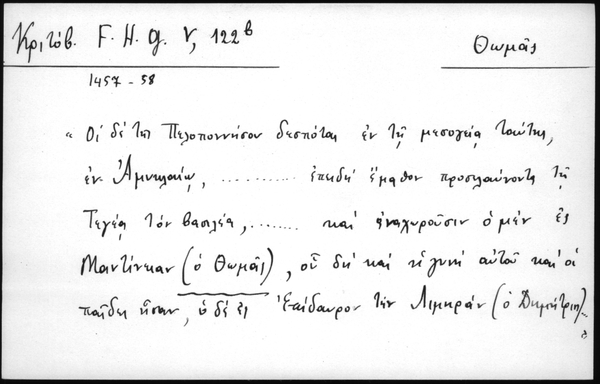 Κριτόβ. F. H. G. V, 122ᵇ
Θωμᾶς
1457 - 58
“ Οἱ δὲ τῆς Πελοποννήσου δεσπόται ἐν τῇ μεσογείᾳ ταύτης,
ἐν Ἀμυκλαίῳ, ............ ἐπειδὴ ἔμαθον προσελαύνοντα τῇ
Τεγέᾳ τὸν βασιλέα, ....... καὶ ἀναχωροῦσιν ὁ μὲν ἐς
Μαντίνειαν (ὁ Θωμᾶς), οὗ δὴ καὶ ἡ γυνὴ αὐτοῦ καὶ οἱ
παῖδες ἦσαν, ὁ δὲ ἐς Ἐπίδαυρον τὴν Λιμηρὰν (ὁ Δημήτριος)...